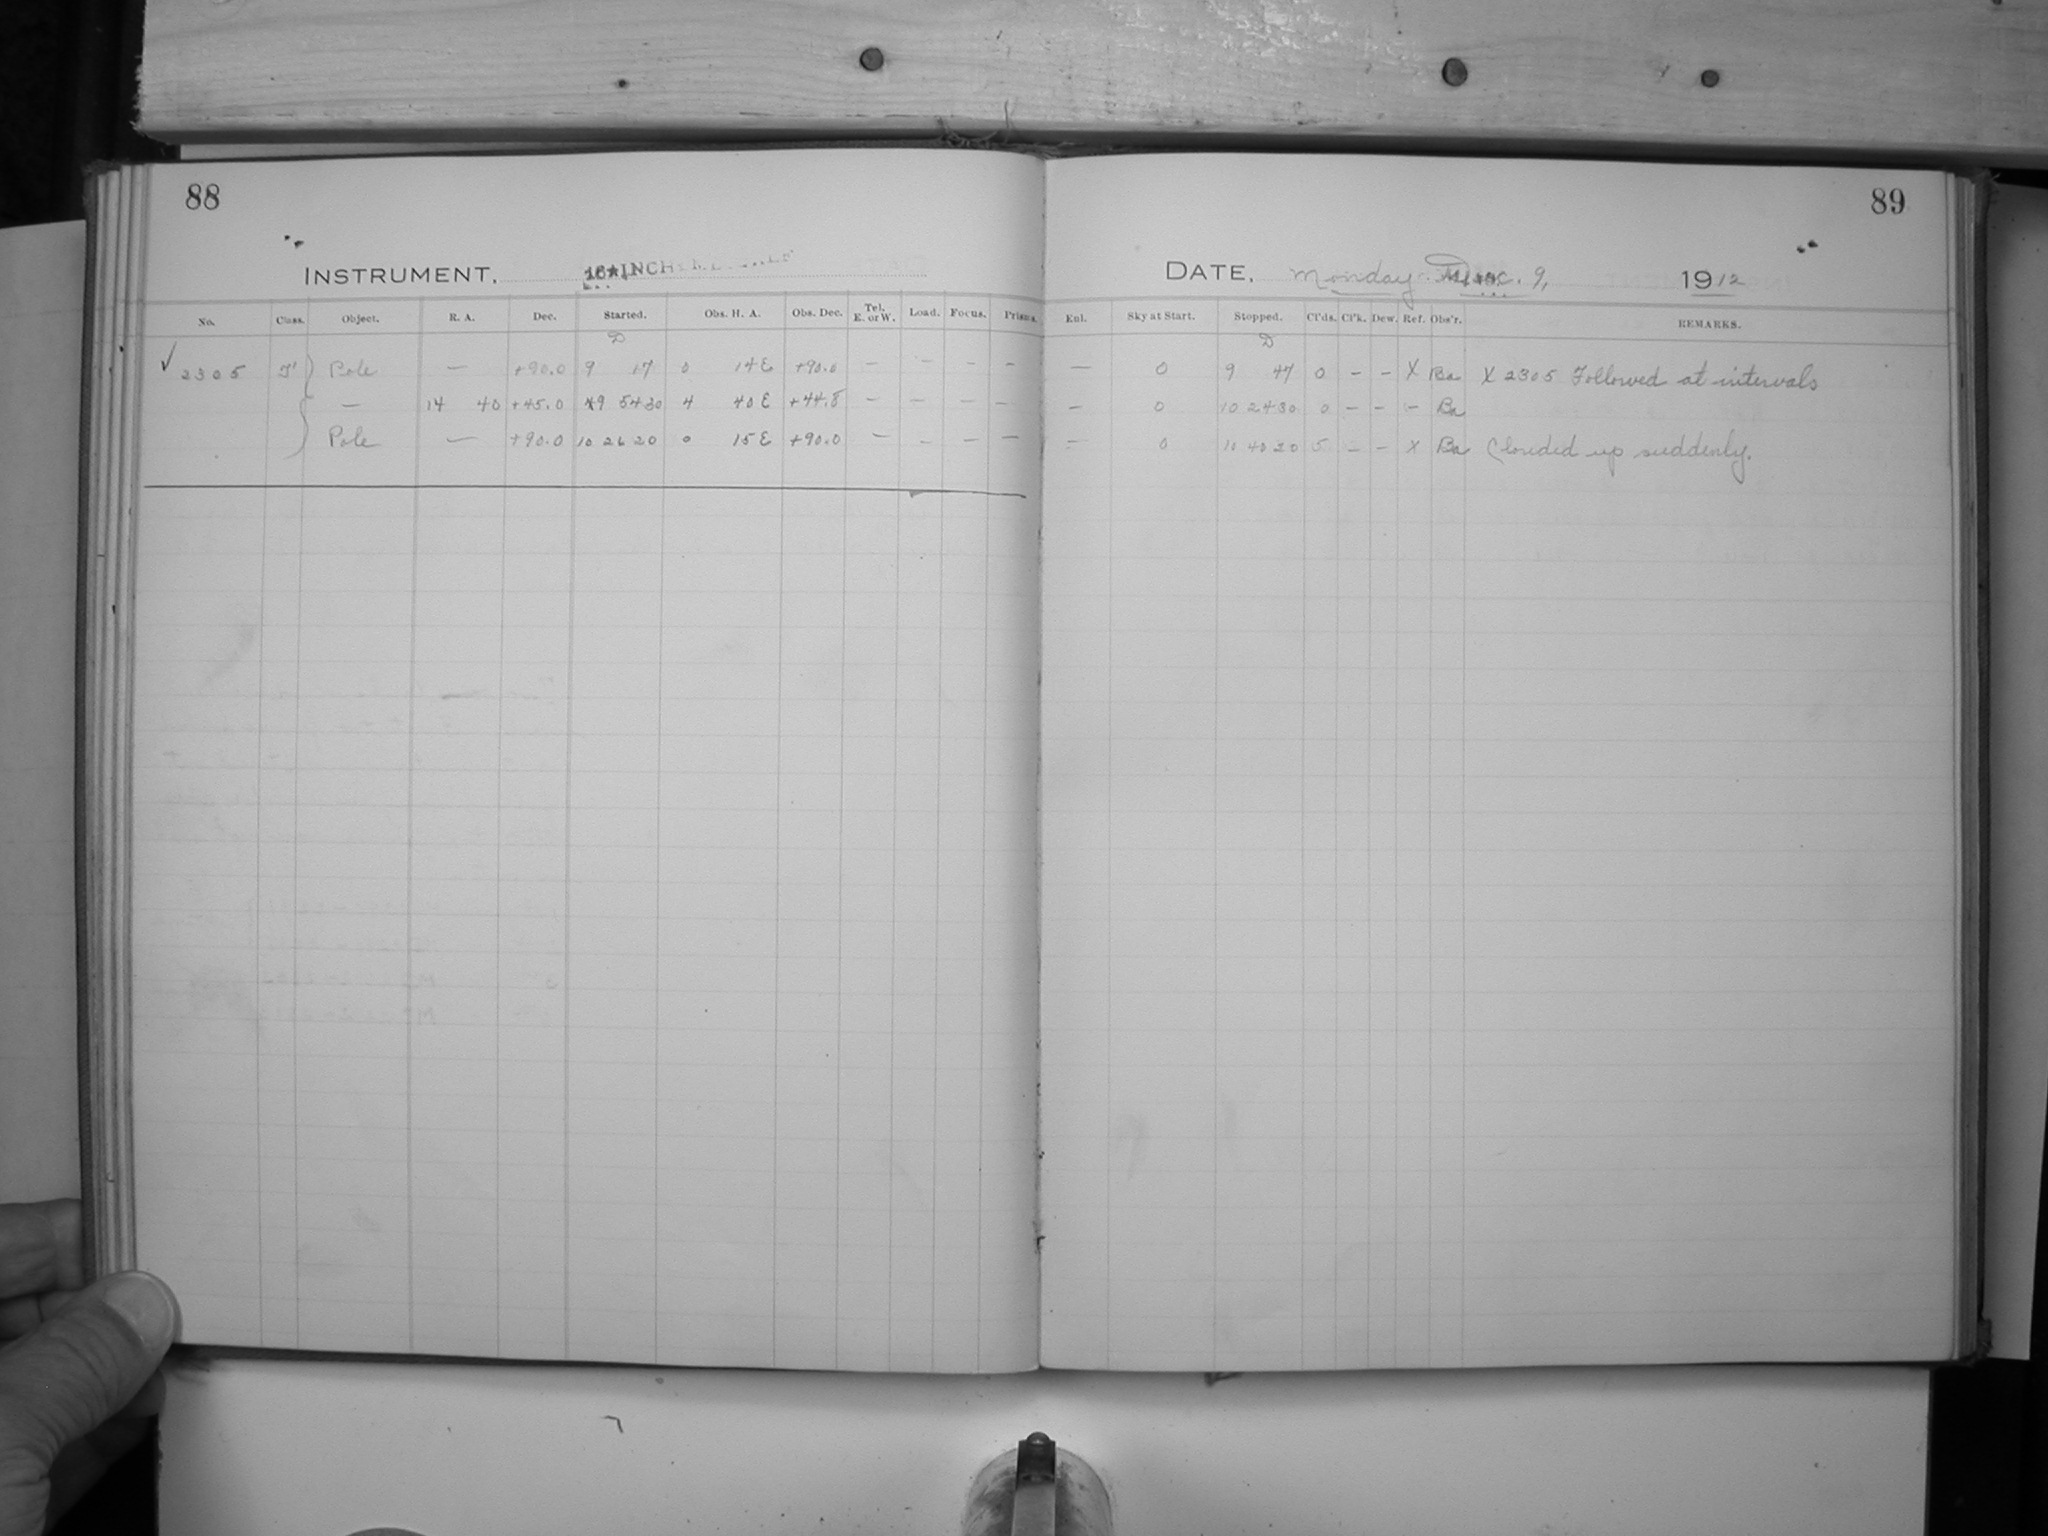 88
89
INSTRUMENT, 16-INCH
DATE, Monday Dec. 9, 1912
No. Class. Object. R. A. Dec. Started. Obs. H. A. Obs. Dec. Tel. E. or W. Load. Focus. Prisms. Enl. Sky at Start. Stopped. Cl'ds. Cl'k. Dew. Ref. Obs'r. REMARKS.
D D
✓ 2305 Pole — +90.0 9 17 0 14 E +90.0 — — — — — 0 9 47 0 — — X Ba X 2305 Followed at intervals
— 14 40 +45.0 9 54 30 4 40 E +44.8 — — — — — 0 10 24 30 0 — — — Ba
Pole — +90.0 10 26 20 0 15 E +90.0 — — — — — 0 10 40 20 5 — — X Ba Clouded up suddenly.